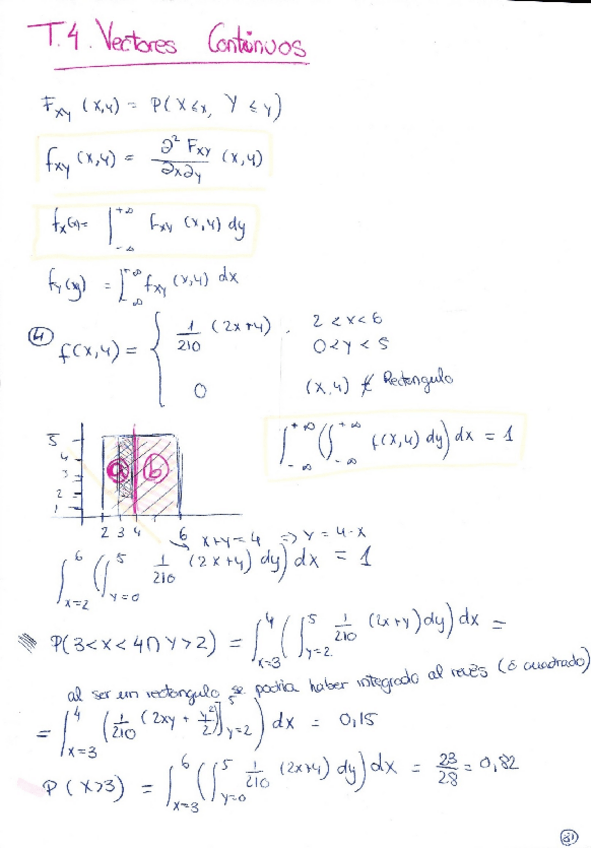 T.4. Vectores Continuos
F_XY (x,y) = P(X ≤ x, Y ≤ y)
f_XY (x,y) = ∂² F_XY / ∂x∂y (x,y)
f_X(x) = ∫_{-∞}^{+∞} f_XY (x,y) dy
f_Y(y) = ∫_{-∞}^{+∞} f_XY (x,y) dx
④ f(x,y) = { 1/210 (2x+y), 2<x<6
0<y<5
0 (x,y) ∉ Rectangulo
∫_{-∞}^{+∞} (∫_{-∞}^{+∞} f(x,y) dy) dx = 1
5
4
3
2
1
a b
2 3 4 6
x+y=4 ⇒ y=4-x
∫_{x=2}^{6} (∫_{y=0}^{5} 1/210 (2x+y) dy) dx = 1
P(3<X<4 ∩ Y>2) = ∫_{x=3}^{4} (∫_{y=2}^{5} 1/210 (2x+y) dy) dx =
al ser un rectangulo se podria haber integrado al revés (ó cuadrado)
= ∫_{x=3}^{4} (1/210 (2xy + y²/2)]_{y=2}^{5}) dx = 0,15
P(X>3) = ∫_{x=3}^{6} (∫_{y=0}^{5} 1/210 (2x+y) dy) dx = 23/28 = 0,82